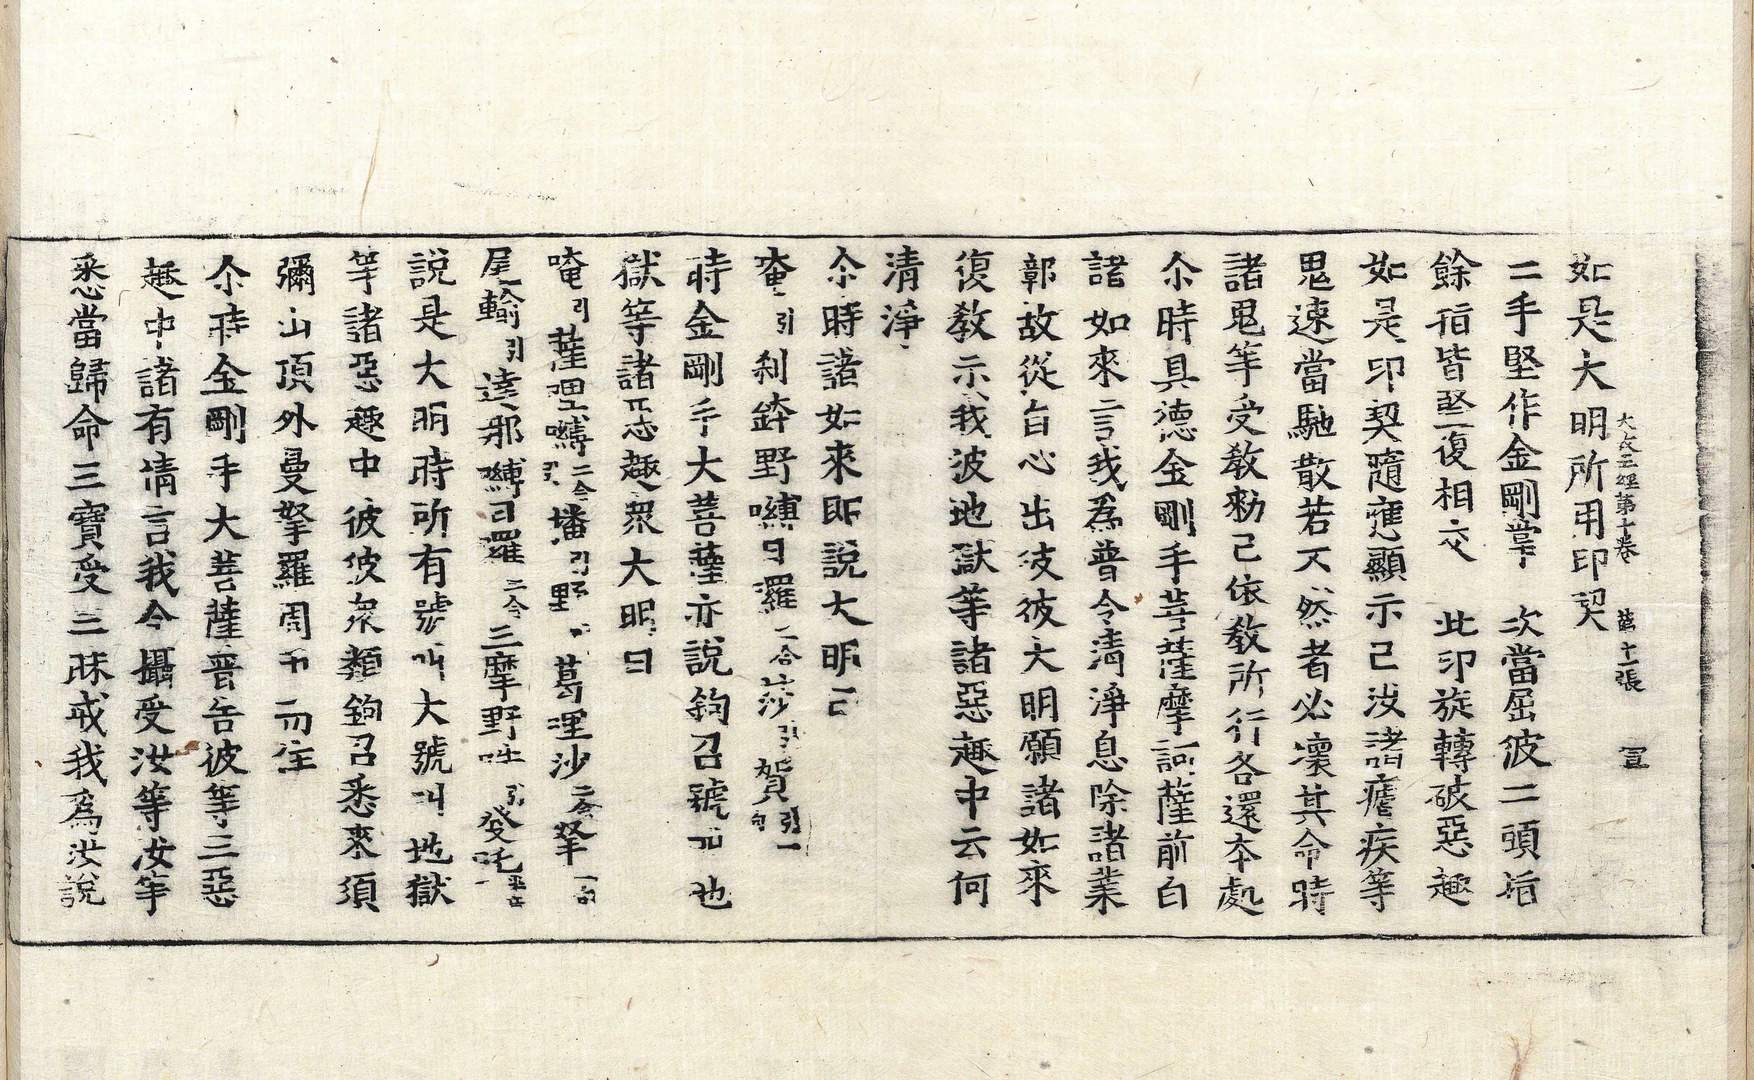 如是大明所用印契
大教王經第十卷 第十一張 宣
二手堅作金剛掌 次當屈彼二頭指
餘指皆竪復相交 此印旋轉破惡趣
如是印契隨應顯示已彼諸瘧疾等
鬼速當馳散若不然者必壞其命時
諸鬼等受敎勑已依敎所行各還本處
尒時具德金剛手菩薩摩訶薩前白
諸如來言我爲普令淸淨息除諸業
鄣故從自心出彼彼大明願諸如來
復敎示我彼地獄等諸惡趣中云何
淸淨
尒時諸如來即說大明曰
唵引刹鉢野嚩日囉二合莎引賀引一句
時金剛手大菩薩亦說鉤召號叫地
獄等諸惡趣衆大明曰
唵引薩哩嚩二合引播引野 葛哩沙二合拏一句
尾輸引達那嚩日囉二合三摩野吽引發吒半音
說是大明時所有號叫大號叫地獄
等諸惡趣中彼彼衆類鉤召悉來須
彌山頂外曼拏羅周帀而住
尒時金剛手大菩薩普告彼等三惡
趣中諸有情言我今攝受汝等汝等
悉當歸命三寶受三昧戒我爲汝說